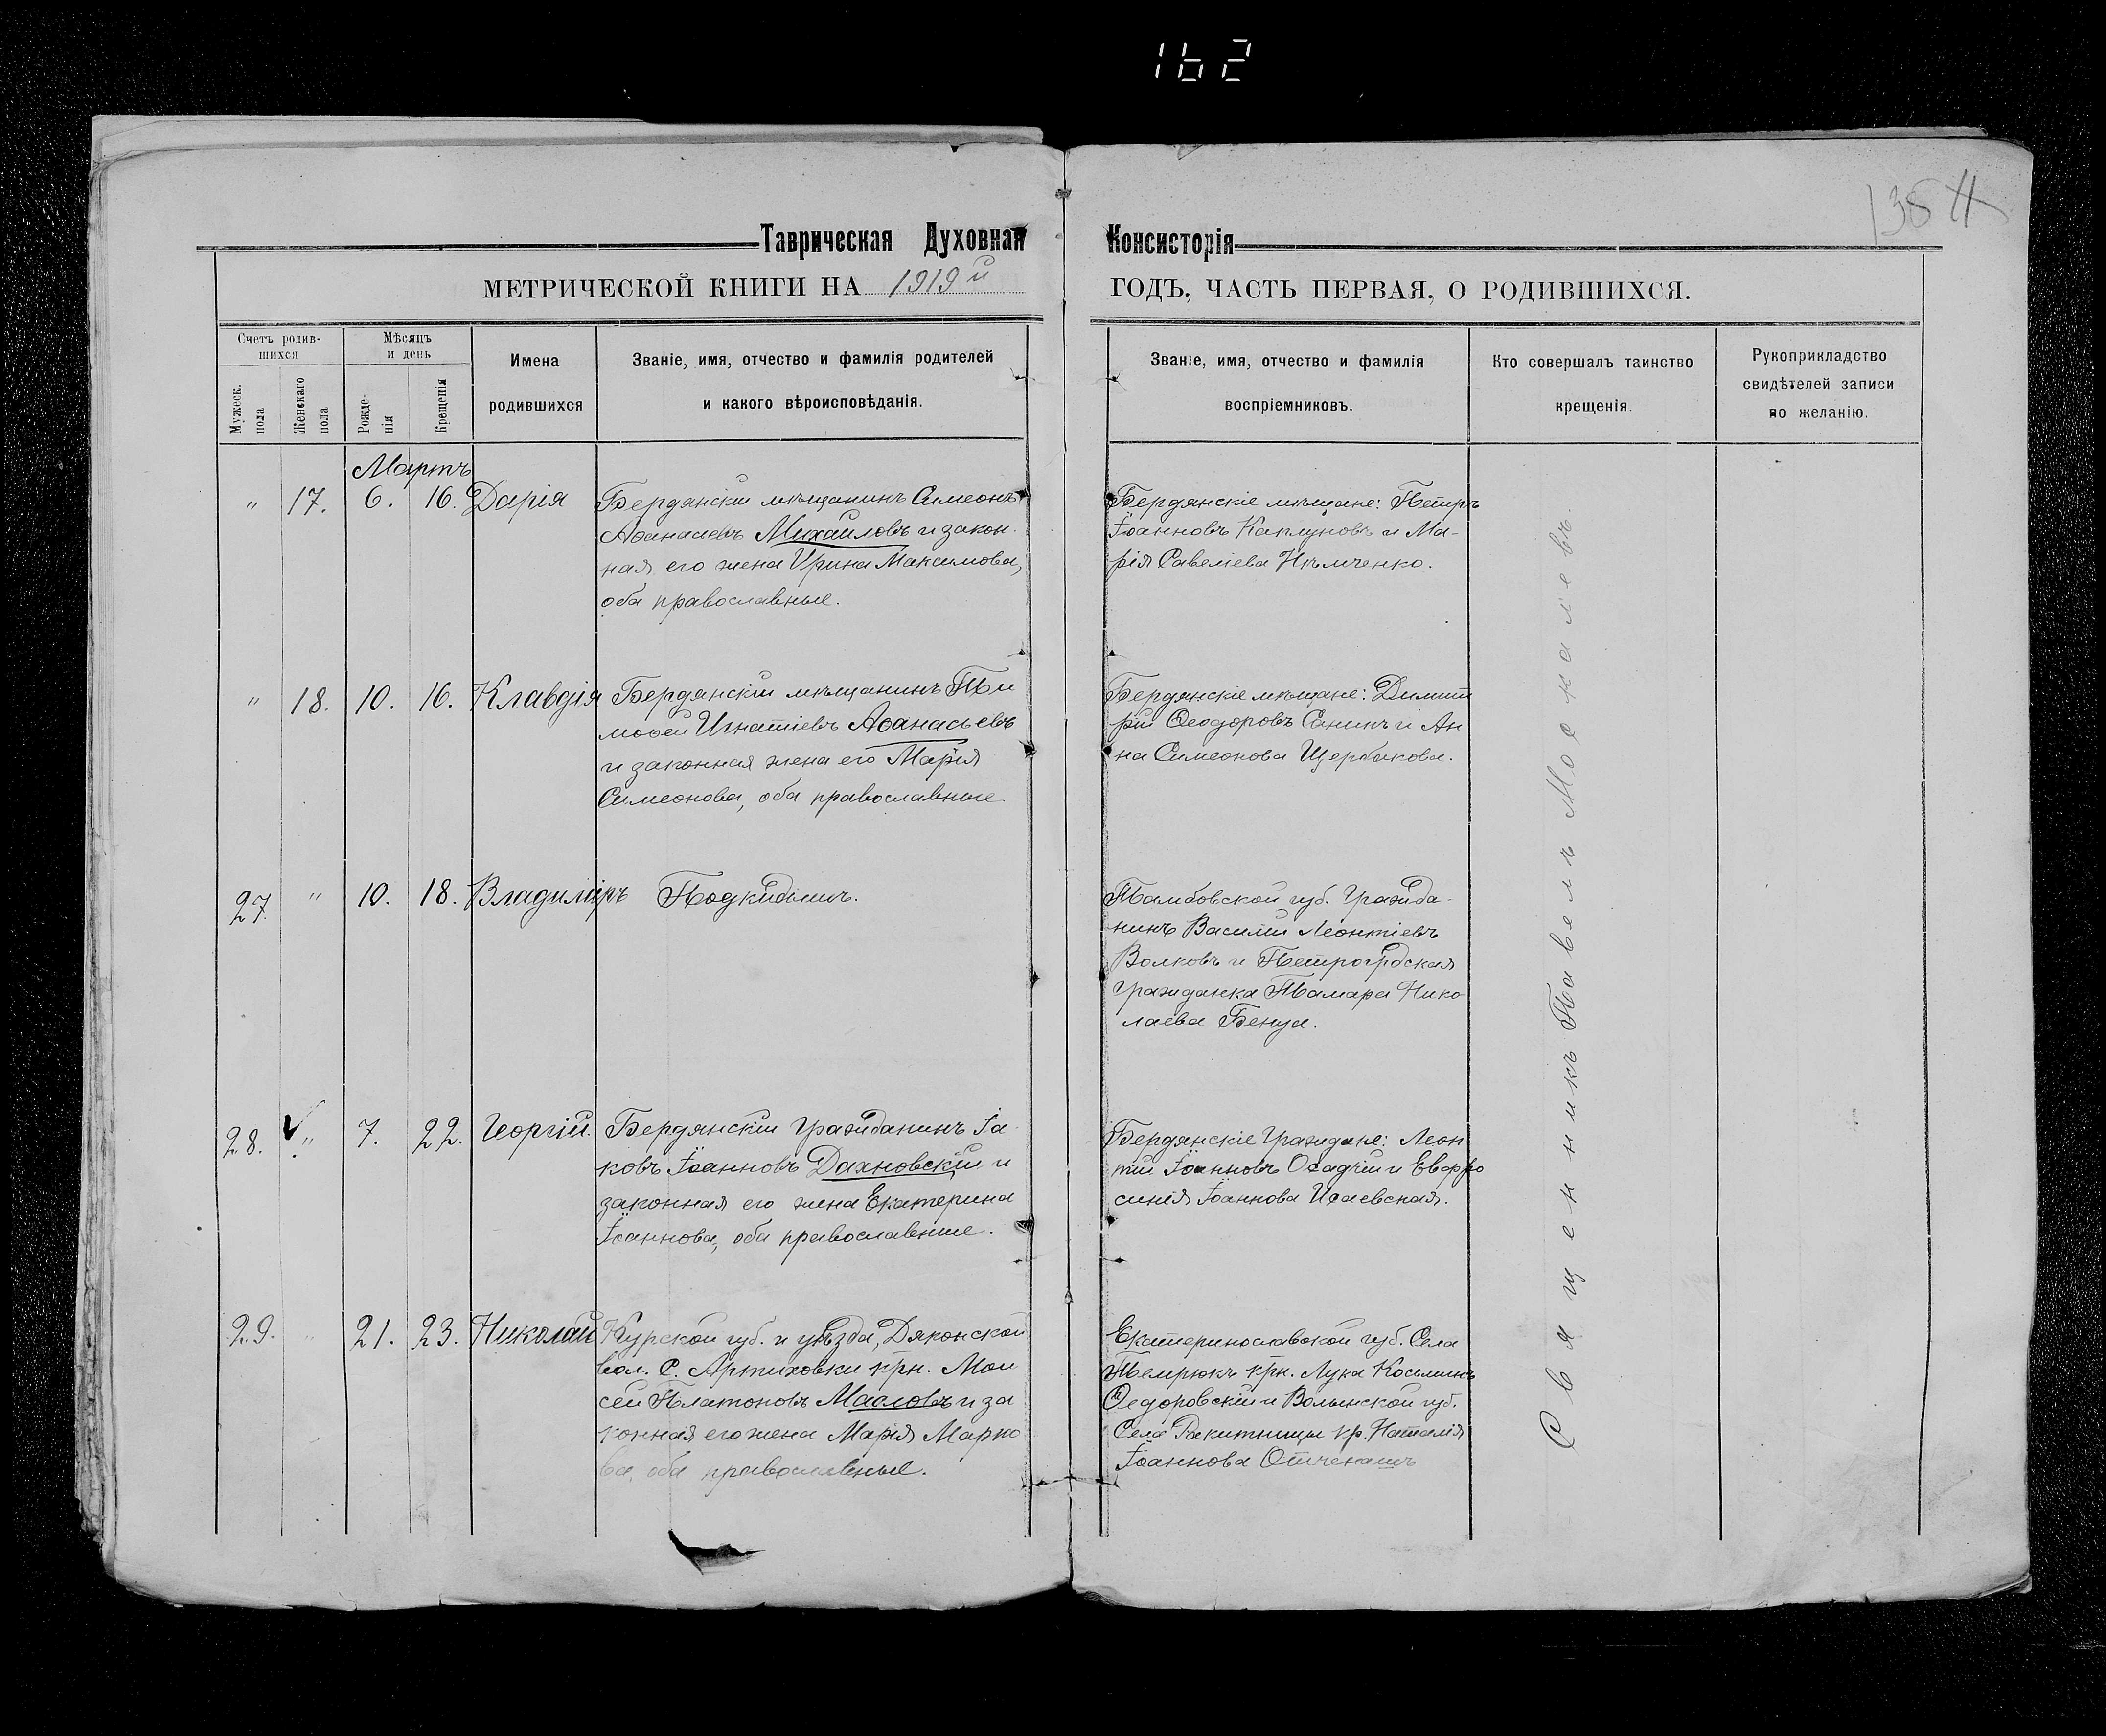 162
135
Таврическая Духовная Консисторія
МЕТРИЧЕСКОЙ КНИГИ НА 1919й ГОДЪ, ЧАСТЬ ПЕРВАЯ, О РОДИВШИХСЯ.
Счетъ родив-
шихся
Мужеск.
пола
Женскаго
пола
Мѣсяцъ
и день
Рожде-
нія
Крещенія
Имена
родившихся
Званіе, имя, отчество и фамилія родителей
и какого вѣроисповѣданія.
Званіе, имя, отчество и фамилія
воспріемниковъ.
Кто совершалъ таинство
крещенія.
Рукоприкладство
свидѣтелей записи
по желанію.
Мартъ
" 17. 6. 16. Дарія
Бердянскій мѣщанинъ Симеонъ
Аѳанасіевъ Михайловъ и закон-
ная его жена Ирина Максимова,
оба православные.
Бердянскіе мѣщане: Петръ
Іоанновъ Каплуновъ и Ма-
рія Савеліева Нѣмченко.
" 18. 10. 16. Клавдія
Бердянскій мѣщанинъ Ти
моѳей Игнатіевъ Аѳанасьевъ
и законная жена его Марія
Симеонова, оба православные
Бердянскіе мѣщане: Димит
рій Ѳеодоровъ Санинъ и Ан
на Симеонова Щербакова.
27. " 10. 18. Владиміръ
Подкидышъ.
Тамбовской губ. гражда-
нинъ Василій Леонтіевъ
Волковъ и Петрогрдская
гражданка Тамара Нико
лаева Бенуа.
28. " 7. 22. Георгій.
Бердянскій гражданинъ Іа
ковъ Іоанновъ Дахновскій и
законная его жена Екатерина
Іоаннова, оба православные.
Бердянскіе граждане: Леон
тій Іоанновъ Осадчій и Евфро
синія Іоаннова Исаевская.
29. " 21. 23. Николай
Курской губ. и уѣзда, Дяконской
вол. С. Артиховки крн. Мои
сей Платоновъ Масловъ и за
конная его жена Марія Марко
ва, оба православные.
Екатеринославской губ. Села
Темрюкъ крн. Лука Косьминъ
Ѳедоровскій и Волынской губ.
Села Ракитницы кр. Наталія
Іоаннова Отченашъ
Священникъ Павелъ